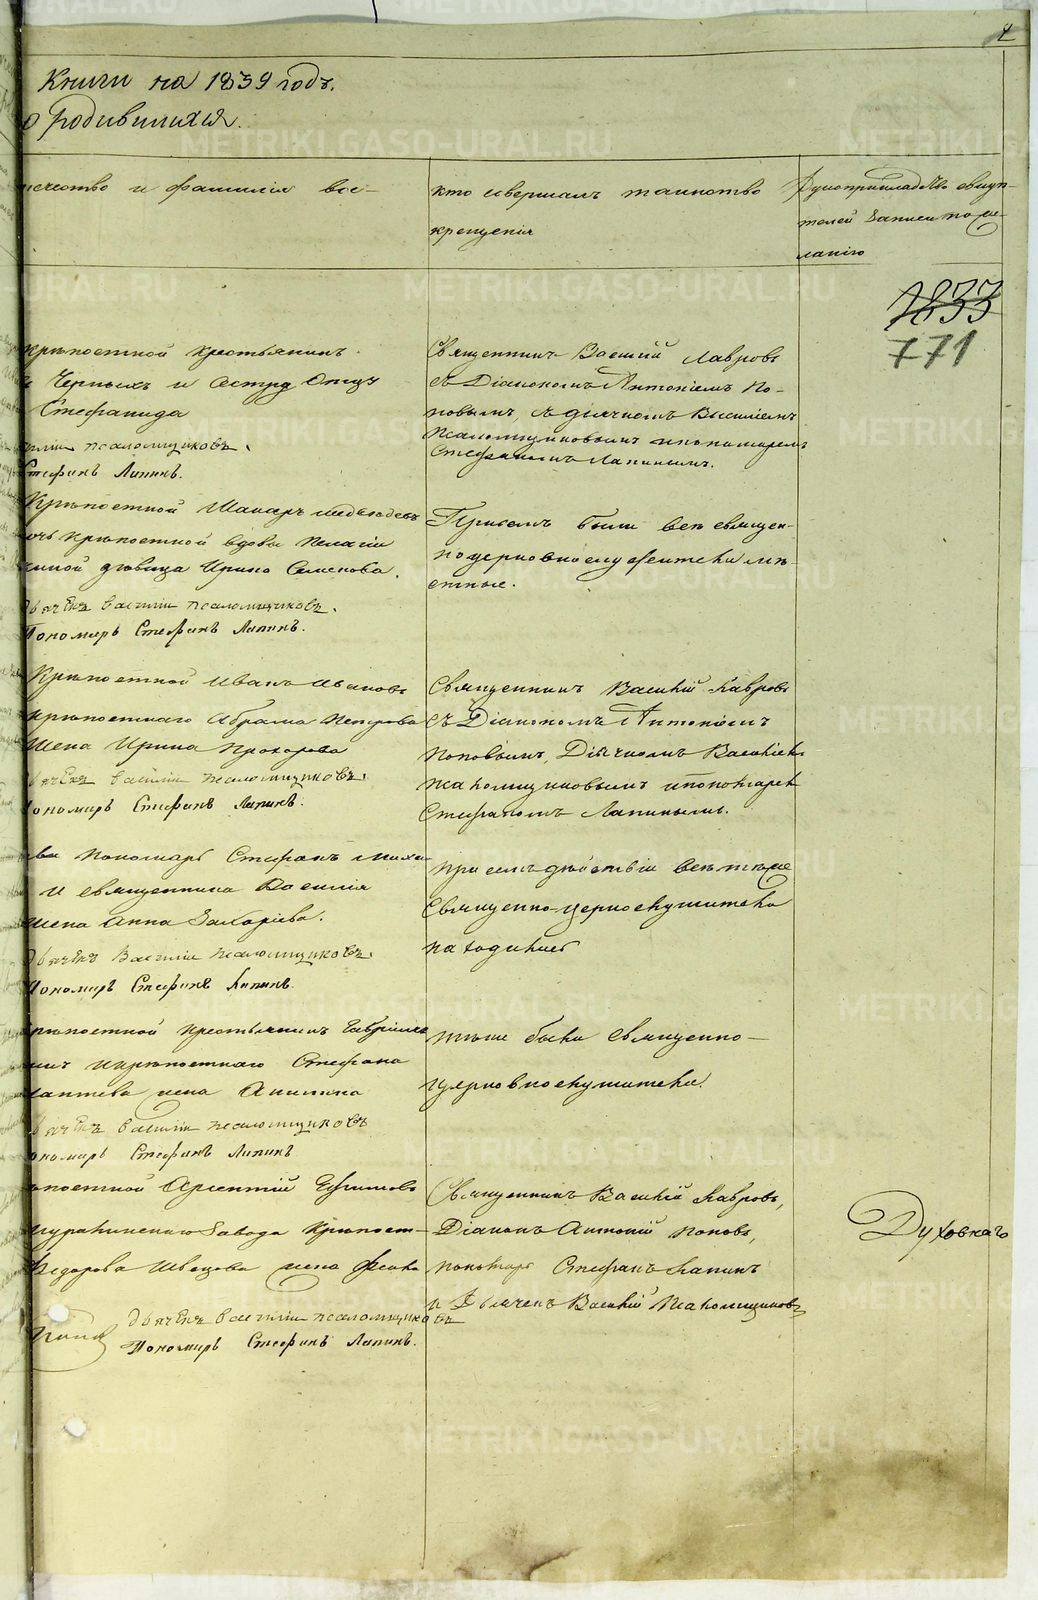 Книги на 1839 годъ.
о родившихся.
отечество и фамилія вос-
кто совершалъ таинство
крещенія
Рукоприкладство свидѣ-
телей записи по же-
ланію
1833
771
крѣпостной крестьянинъ
Черныхъ и сестра отцу
Стефанида
псаломщиковъ.
Стефанъ Лапинъ.
Священникъ Василій Лавровъ
съ Діакономъ Антоніемъ По-
повымъ, съ дьячкомъ Василіемъ
Псаломщиковымъ и пономаремъ
Стефаномъ Лапинымъ.
Крѣпостной Макаръ Медведевъ
дочь крѣпостной вдовы Пелагіи
девица Ирина Семенова.
дьячекъ Василіи псаломщиковъ.
Пономарь Стефанъ Лапинъ.
При семъ были всѣ священ-
ноцерковнослужители мѣ-
стные.
Крѣпостной Иванъ Ивановъ
крѣпостнаго Абрама Петрова
жена Ирина Прохорова
дьячекъ Василіи псаломщиковъ.
пономарь Стефанъ Лапинъ.
Священникъ Василій Лавровъ
съ Діакономъ Антоніемъ
Поповымъ, Дьячкомъ Василіемъ
Псаломщиковымъ и пономаремъ
Стефаномъ Лапинымъ.
Пономарь Стефанъ
и священника Василія
жена Анна Захаріева.
дьячекъ Василіи псаломщиковъ.
Пономарь Стефанъ Лапинъ.
При семъ дѣйствіи всѣ тѣже
Священно-церкослужители
находились
крѣпостной крестьянинъ
и крѣпостнаго Стефана
жена
дьячекъ Василіи псаломщиковъ
пономарь Стефанъ Лапинъ
тѣже были священно-
церковнослужители.
крѣпостной Арсентій Ефимовъ
завода крѣпост-
Федорова Швецова жена
дьячекъ Василіи псаломщиковъ
Пономарь Стефанъ Лапинъ.
Священникъ Василій Лавровъ,
Діаконъ Антоній Поповъ,
пономарь Стефанъ Лапинъ
и Дьячекъ Василій Псаломщиковъ
Духовнаго
METRIKI.GASO-URAL.RU